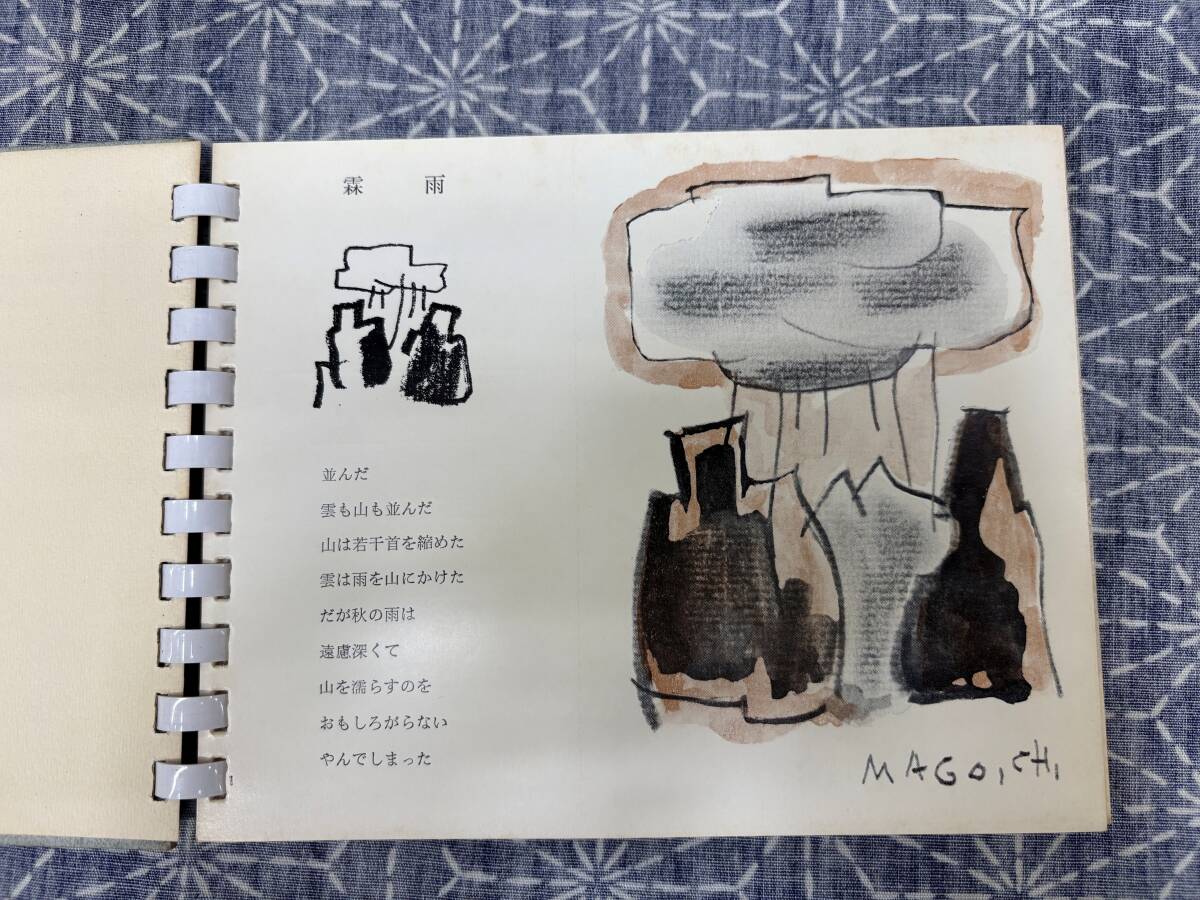 霖雨
並んだ
雲も山も並んだ
山は若干首を縮めた
雲は雨を山にかけた
だが秋の雨は
遠慮深くて
山を濡らすのを
おもしろがらない
やんでしまった
1
MAGO,CH,